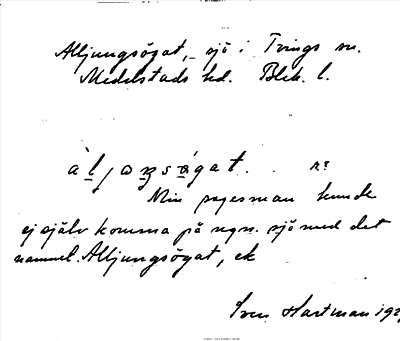 Alljungsögat, sjö i Tvings sn.
Medelstads hd. Blek. l.
Min sagesman kunde
ej själv komma på ngn. sjö med det
namnet. Alljungsögat, ek
Sven Hartman